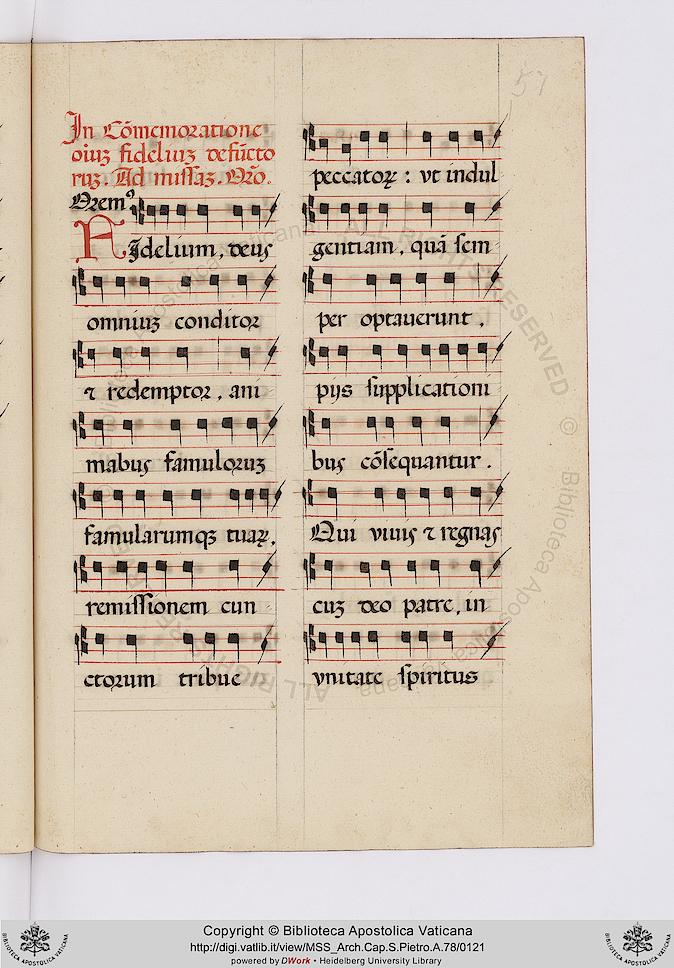 57
In Cōmemoratione
oīuꝫ fideliuꝫ defūcto
ruꝫ. Ad missaꝫ. Orō.
Oremꝰ
FIdelium, deus
omniuꝫ conditor
⁊ redemptor, ani
mabus famuloruꝫ
famularumqꝫ tuaꝝ,
remissionem cun
ctorum tribue
peccatoꝝ: vt indul
gentiam, quā sem
per optauerunt,
pijs supplicationi
bus cōsequantur.
Qui viuis ⁊ regnas
cuꝫ deo patre, in
vnitate spiritus
ALL RIGHTS RESERVED
© Biblioteca Apostolica Vaticana
BIBLIOTECA APOSTOLICA VATICANA
Copyright © Biblioteca Apostolica Vaticana
http://digi.vatlib.it/view/MSS_Arch.Cap.S.Pietro.A.78/0121
powered by DWork • Heidelberg University Library
BIBLIOTECA APOSTOLICA VATICANA